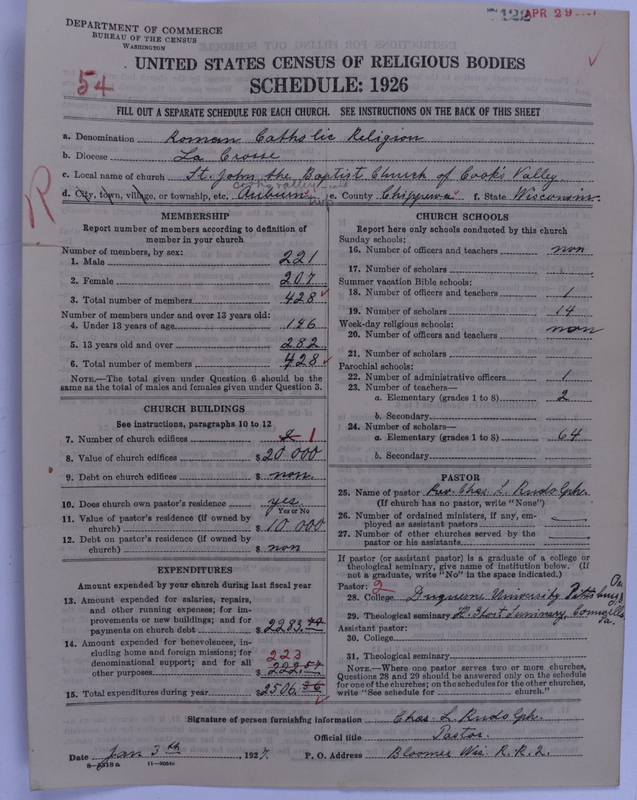 DEPARTMENT OF COMMERCE
BUREAU OF THE CENSUS
WASHINGTON
122 APR 29
54
UNITED STATES CENSUS OF RELIGIOUS BODIES
SCHEDULE: 1926
FILL OUT A SEPARATE SCHEDULE FOR EACH CHURCH. SEE INSTRUCTIONS ON THE BACK OF THIS SHEET
a. Denomination Roman Catholic Religion
b. Diocese La Crosse
c. Local name of church St. John the Baptist Church of Cook's Valley.
R
d. City, town, village, or township, etc. Auburn e. County Chippewa f. State Wisconsin.
MEMBERSHIP
Report number of members according to definition of
member in your church
Number of members, by sex:
1. Male 221
2. Female 207
3. Total number of members 428
Number of members under and over 13 years old:
4. Under 13 years of age 146
5. 13 years old and over 282
6. Total number of members 428
NOTE.—The total given under Question 6 should be the
same as the total of males and females given under Question 3.
CHURCH BUILDINGS
See instructions, paragraphs 10 to 12
7. Number of church edifices 1
8. Value of church edifices $20 000
9. Debt on church edifices $ non.
10. Does church own pastor's residence yes
Yes or No
11. Value of pastor's residence (if owned by
church) $10 000
12. Debt on pastor's residence (if owned by
church) $ non
EXPENDITURES
Amount expended by your church during last fiscal year
13. Amount expended for salaries, repairs,
and other running expenses; for im-
provements or new buildings; and for
payments on church debt $2283.
14. Amount expended for benevolences, in-
cluding home and foreign missions; for
denominational support; and for all
223
other purposes $222.57
15. Total expenditures during year $2506.36
CHURCH SCHOOLS
Report here only schools conducted by this church
Sunday schools:
16. Number of officers and teachers non
17. Number of scholars
Summer vacation Bible schools:
18. Number of officers and teachers 1
19. Number of scholars 14
Week-day religious schools:
20. Number of officers and teachers non
21. Number of scholars
Parochial schools:
22. Number of administrative officers 1
23. Number of teachers—
a. Elementary (grades 1 to 8) 2
b. Secondary
24. Number of scholars—
a. Elementary (grades 1 to 8) 64
b. Secondary
PASTOR
25. Name of pastor Rev. Chas. L. Rudolph.
(If church has no pastor, write "None")
26. Number of ordained ministers, if any, em-
ployed as assistant pastors
27. Number of other churches served by the
pastor or his assistants
If pastor (or assistant pastor) is a graduate of a college or
theological seminary, give name of institution below. (If
not a graduate, write "No" in the space indicated.)
Pastor: 2
28. College Duquesne University Pittsburg Pa.
29. Theological seminary H. Ghost Seminary, Cornwells Pa.
Assistant pastor:
30. College
31. Theological seminary
NOTE.—Where one pastor serves two or more churches,
Questions 28 and 29 should be answered only on the schedule
for one of the churches; on the schedules for the other churches,
write "See schedule for church."
Signature of person furnishing information Chas. L. Rudolph.
Official title Pastor.
Date Jan 3th, 1927. P. O. Address Bloomer Wis. R.R.2.